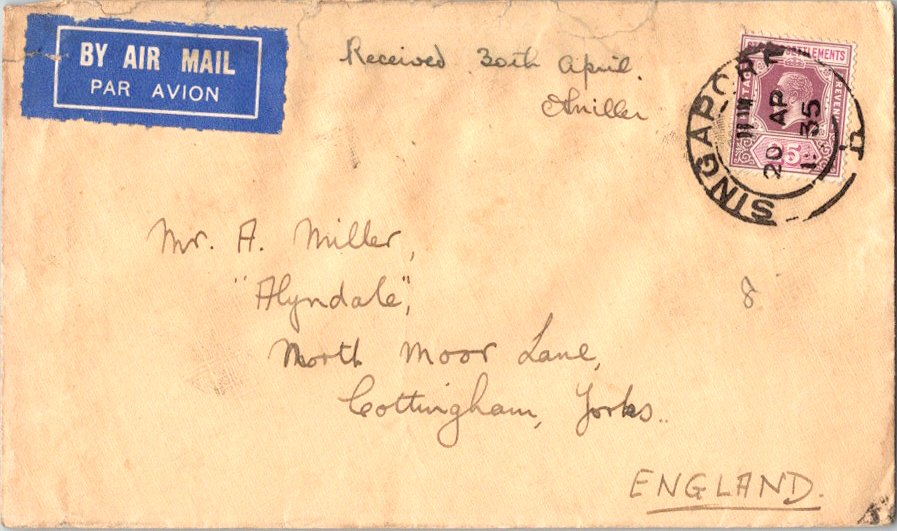 BY AIR MAIL
PAR AVION
Received 30th April.
AMiller
STRAITS SETTLEMENTS
POSTAGE
REVENUE
5
SINGAPORE
20 AP
35
Mr. A. Miller,
"Alyndale",
North Moor Lane,
Cottingham, Yorks..
8
ENGLAND.